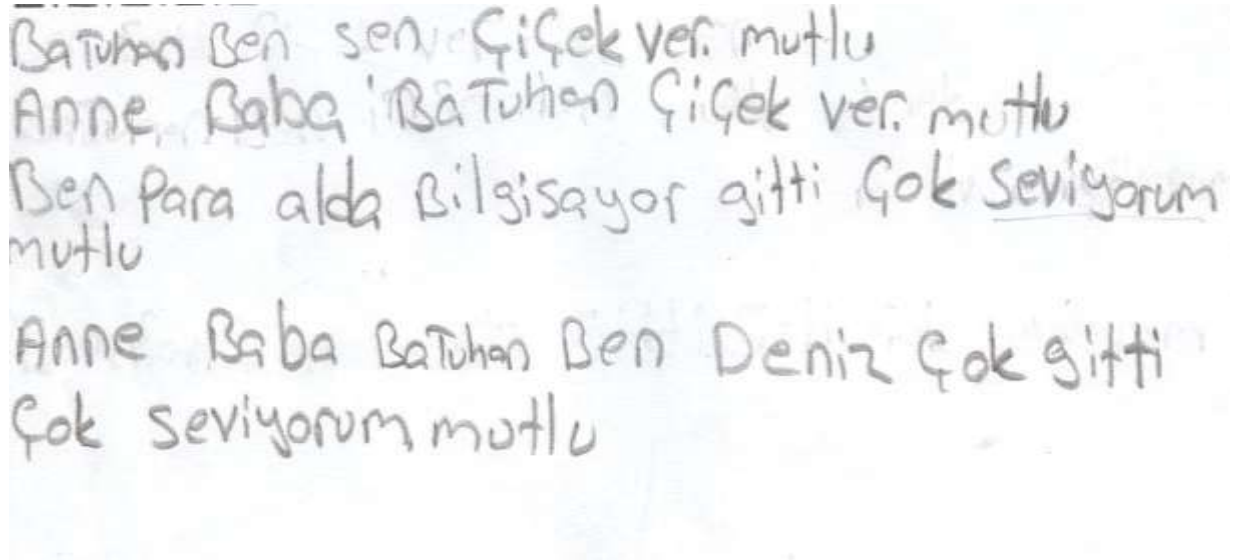 Batuhan Ben sen Çiçek ver. mutlu
Anne Baba Batuhan Çiçek ver. mutlu
Ben Para alda Bilgisayar gitti Çok seviyorum
mutlu
Anne Baba Batuhan Ben Deniz Çok gitti
Çok seviyorum mutlu